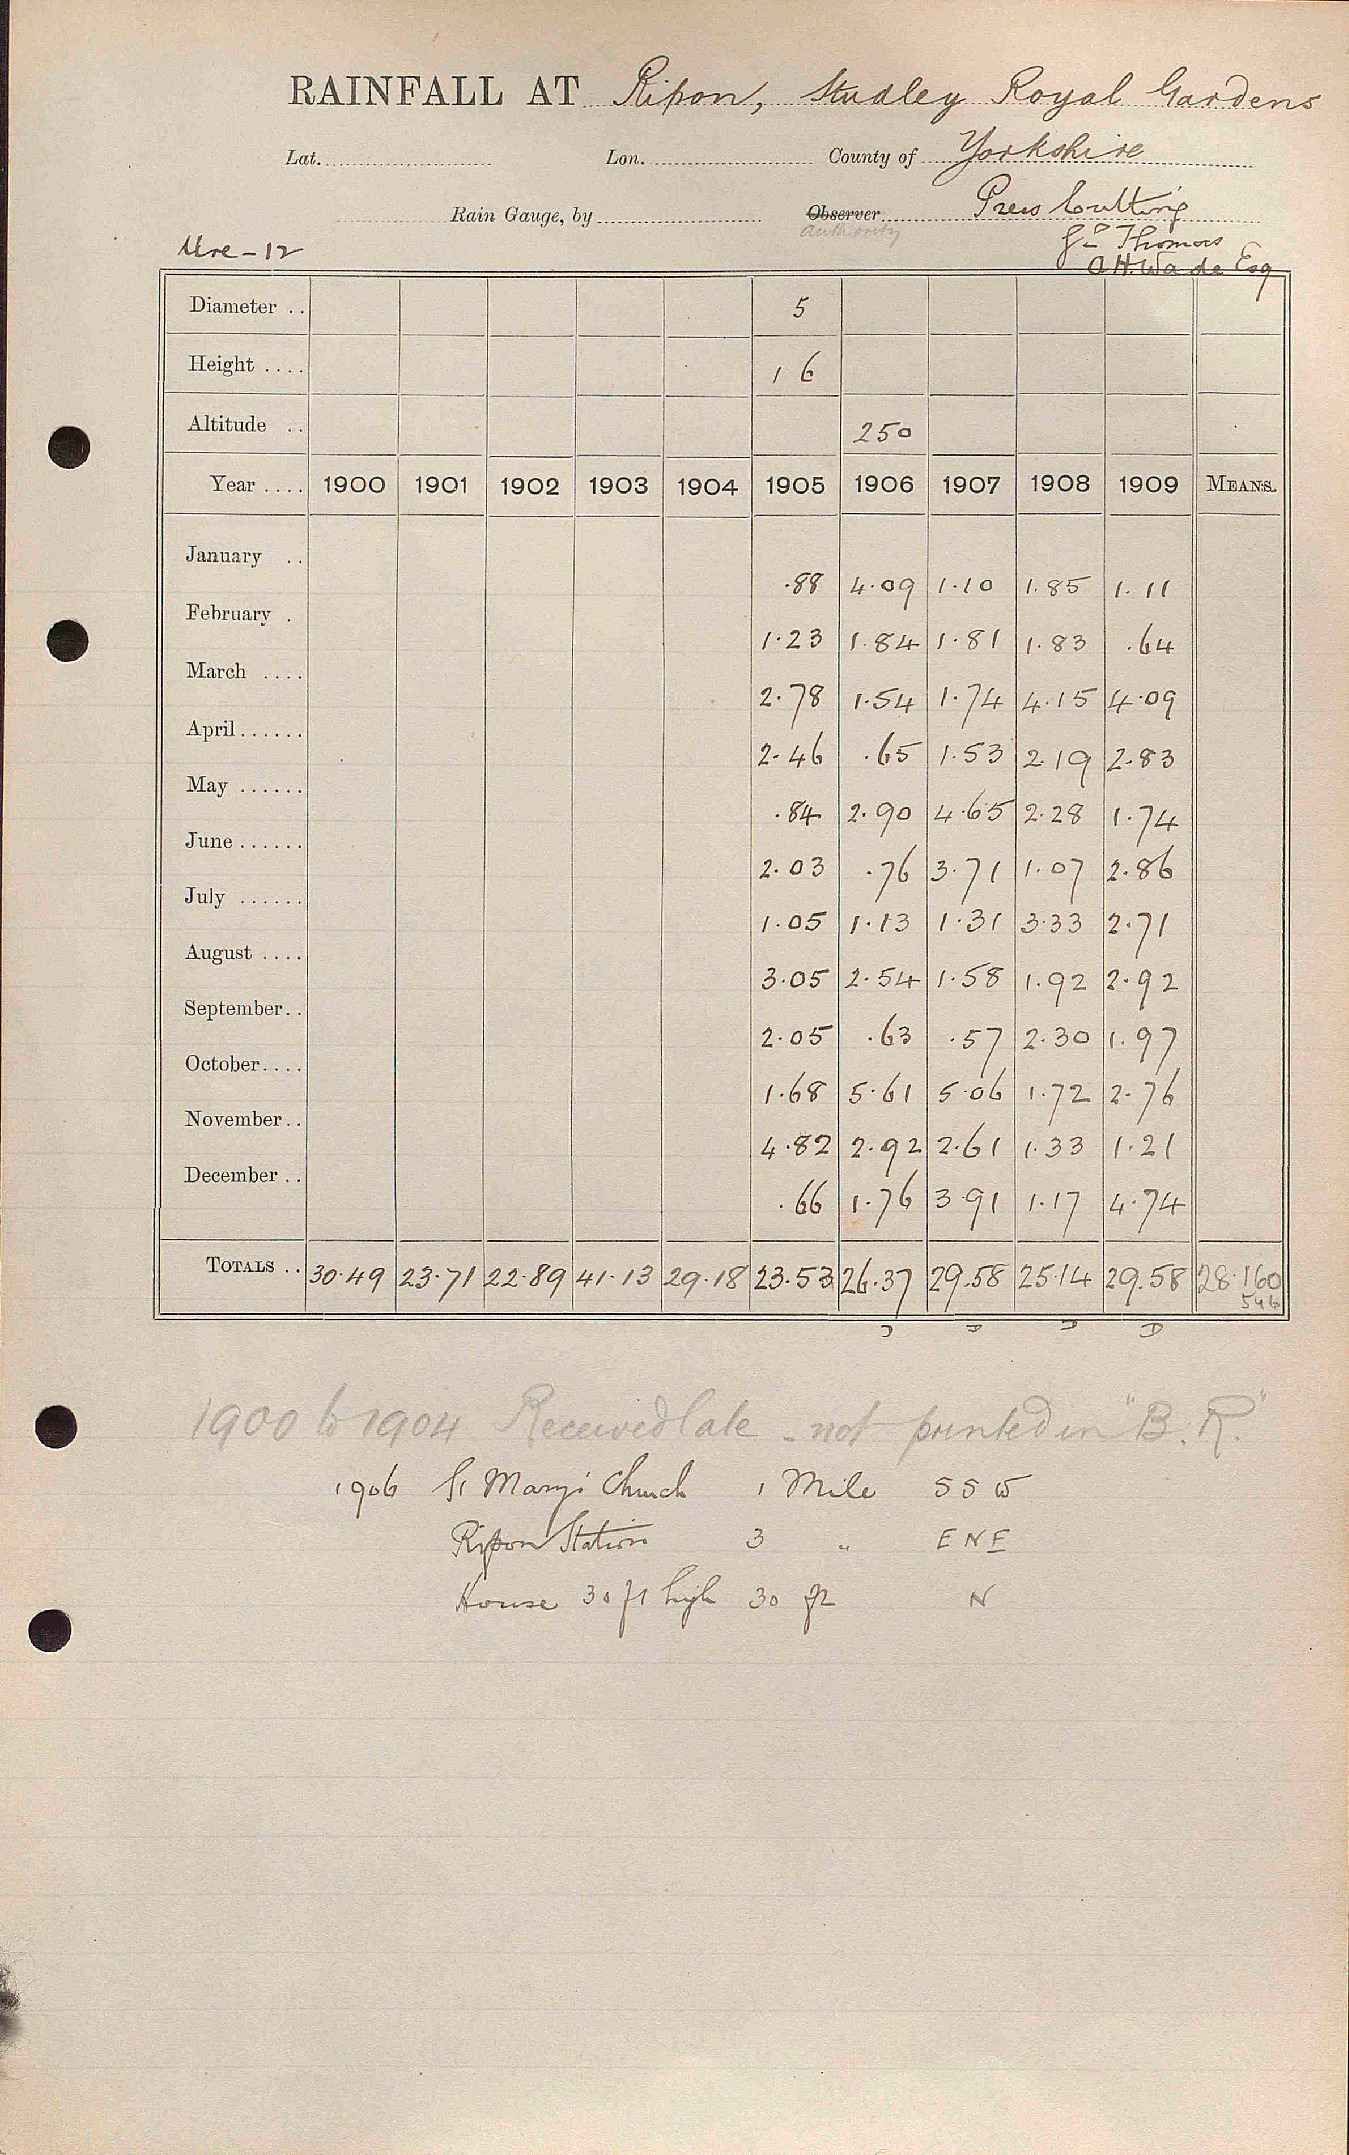 RAINFALL AT Ripon, Studley Royal Gardens
Lat. Lon. County of Yorkshire
Rain Gauge, by Observer Press Cutting
authority
Ure - 12 Thomas
A.H. Wade Esq
Diameter .. 5
Height .... 1 6
Altitude .. 250
Year .... 1900 1901 1902 1903 1904 1905 1906 1907 1908 1909 MEANS.
January .. .88 4.09 1.10 1.85 1.11
February . 1.23 1.84 1.81 1.83 .64
March .... 2.78 1.54 1.74 4.15 4.09
April...... 2.46 .65 1.53 2.19 2.83
May ...... .84 2.90 4.65 2.28 1.74
June...... 2.03 .76 3.71 1.07 2.86
July ...... 1.05 1.13 1.31 3.33 2.71
August .... 3.05 2.54 1.58 1.92 2.92
September.. 2.05 .63 .57 2.30 1.97
October.... 1.68 5.61 5.06 1.72 2.76
November.. 4.82 2.92 2.61 1.33 1.21
December .. .66 1.76 3.91 1.17 4.74
TOTALS .. 30.49 23.71 22.89 41.13 29.18 23.53 26.37 29.58 25.14 29.58 28.160
546
D D D D
1900 to 1904 Received late - not printed in "B.R."
1906 St Mary's Church 1 Mile SSW
Ripon Station 3 " ENE
House 30 ft high 30 ft N